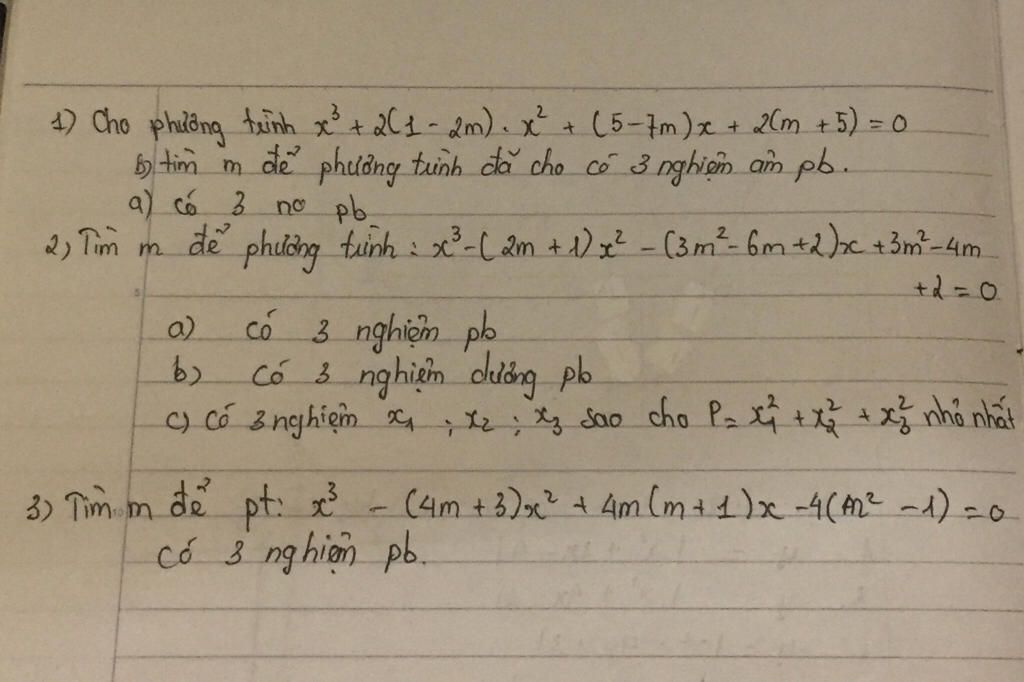 1) Cho phương trình x³ + 2(1 - 2m) . x² + (5-7m)x + 2(m + 5) = 0
b) tìm m để phương trình đã cho có 3 nghiệm âm pb.
a) có 3 no pb
2) Tìm m để phương trình : x³ - (2m + 1)x² - (3m² - 6m + 2)x + 3m² - 4m
+ 2 = 0
a) có 3 nghiệm pb
b) có 3 nghiệm dương pb
c) có 3 nghiệm x₁ ; x₂ ; x₃ sao cho P = x₁² + x₂² + x₃² nhỏ nhất
3) Tìm m để pt: x³ - (4m + 3)x² + 4m(m + 1)x - 4(m² - 1) = 0
có 3 nghiệm pb.